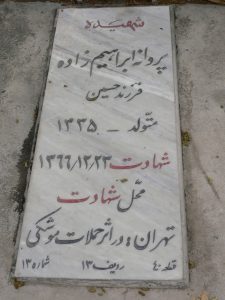 شهیده
پروانه ابراهیم زاده
فرزند حسین
متولد - ۱۳۳۵
شهادت ۱۳۶۶/۱۲/۲۳
محل شهادت
تهران : در اثر حملات موشکی
قطعه ۴۰ ردیف ۱۳ شماره ۱۳